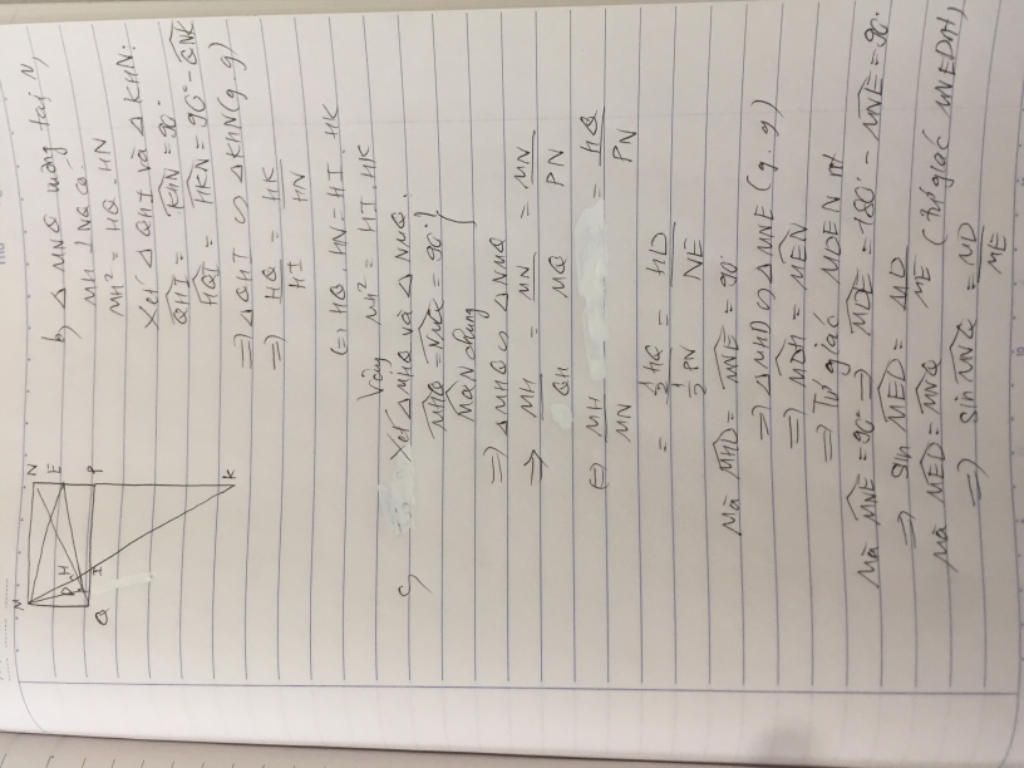 M
N
E
P
D
H
I
Q
K
b) Δ MNQ vuông tại N,
MH ⊥ NQ có:
MH² = HQ . HN
Xét Δ QHI và Δ KHN:
QHI = KHN = 90°
HQI = HKN = 90° - QNK
=> Δ QHI ∽ Δ KHN (g.g)
=> HQ/HI = HK/HN
(=) HQ . HN = HI . HK
Vậy MH² = HI . HK
c, Xét Δ MHQ và Δ NMQ.
MHQ = NMQ = 90° }
MQN chung
=> Δ MHQ ∽ Δ NMQ
=> MH/QH = MN/MQ = MN/PN
(=) MH/MN = HQ/PN
= ½HQ/½PN = HD/NE
Mà MHD = MNE = 90°
=> Δ MHD ∽ Δ MNE (g.g)
=> MDH = MEN
=> Tứ giác MDEN nt
Mà MNE = 90° => MDE = 180° - MNE = 90°
=> sin MED = MD/ME
Mà MED = MNQ (tứ giác MEDH)
=> sin MNQ = MD/ME